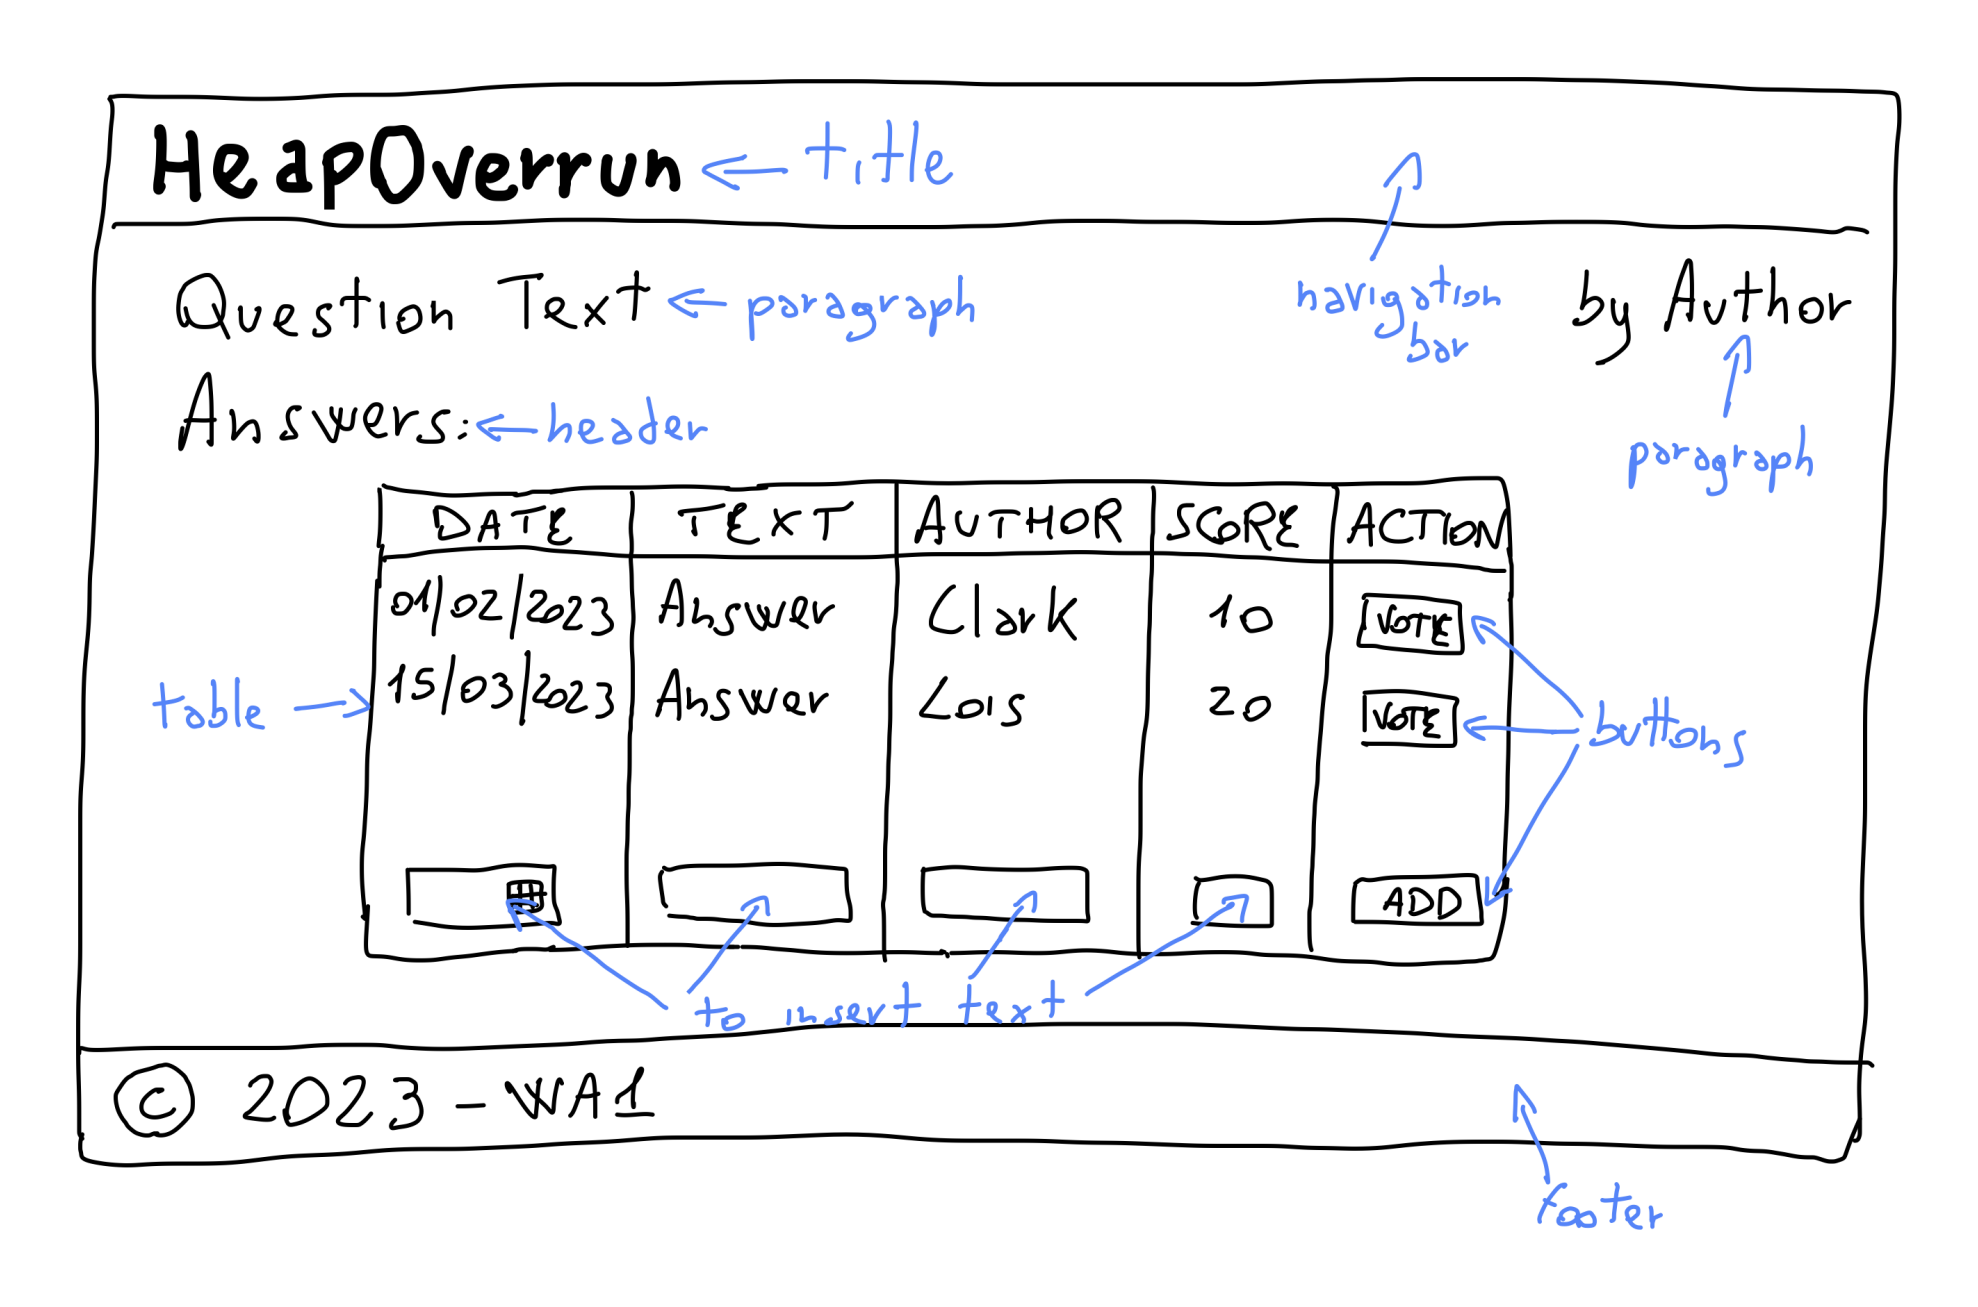 HeapOverrun
title
Question Text
paragraph
navigation
bar
by Author
paragraph
Answers:
header
DATE TEXT AUTHOR SCORE ACTION
01/02/2023 Answer Clark 10 VOTE
15/03/2023 Answer Lois 20 VOTE
table
buttons
ADD
to insert text
© 2023 - WA1
footer